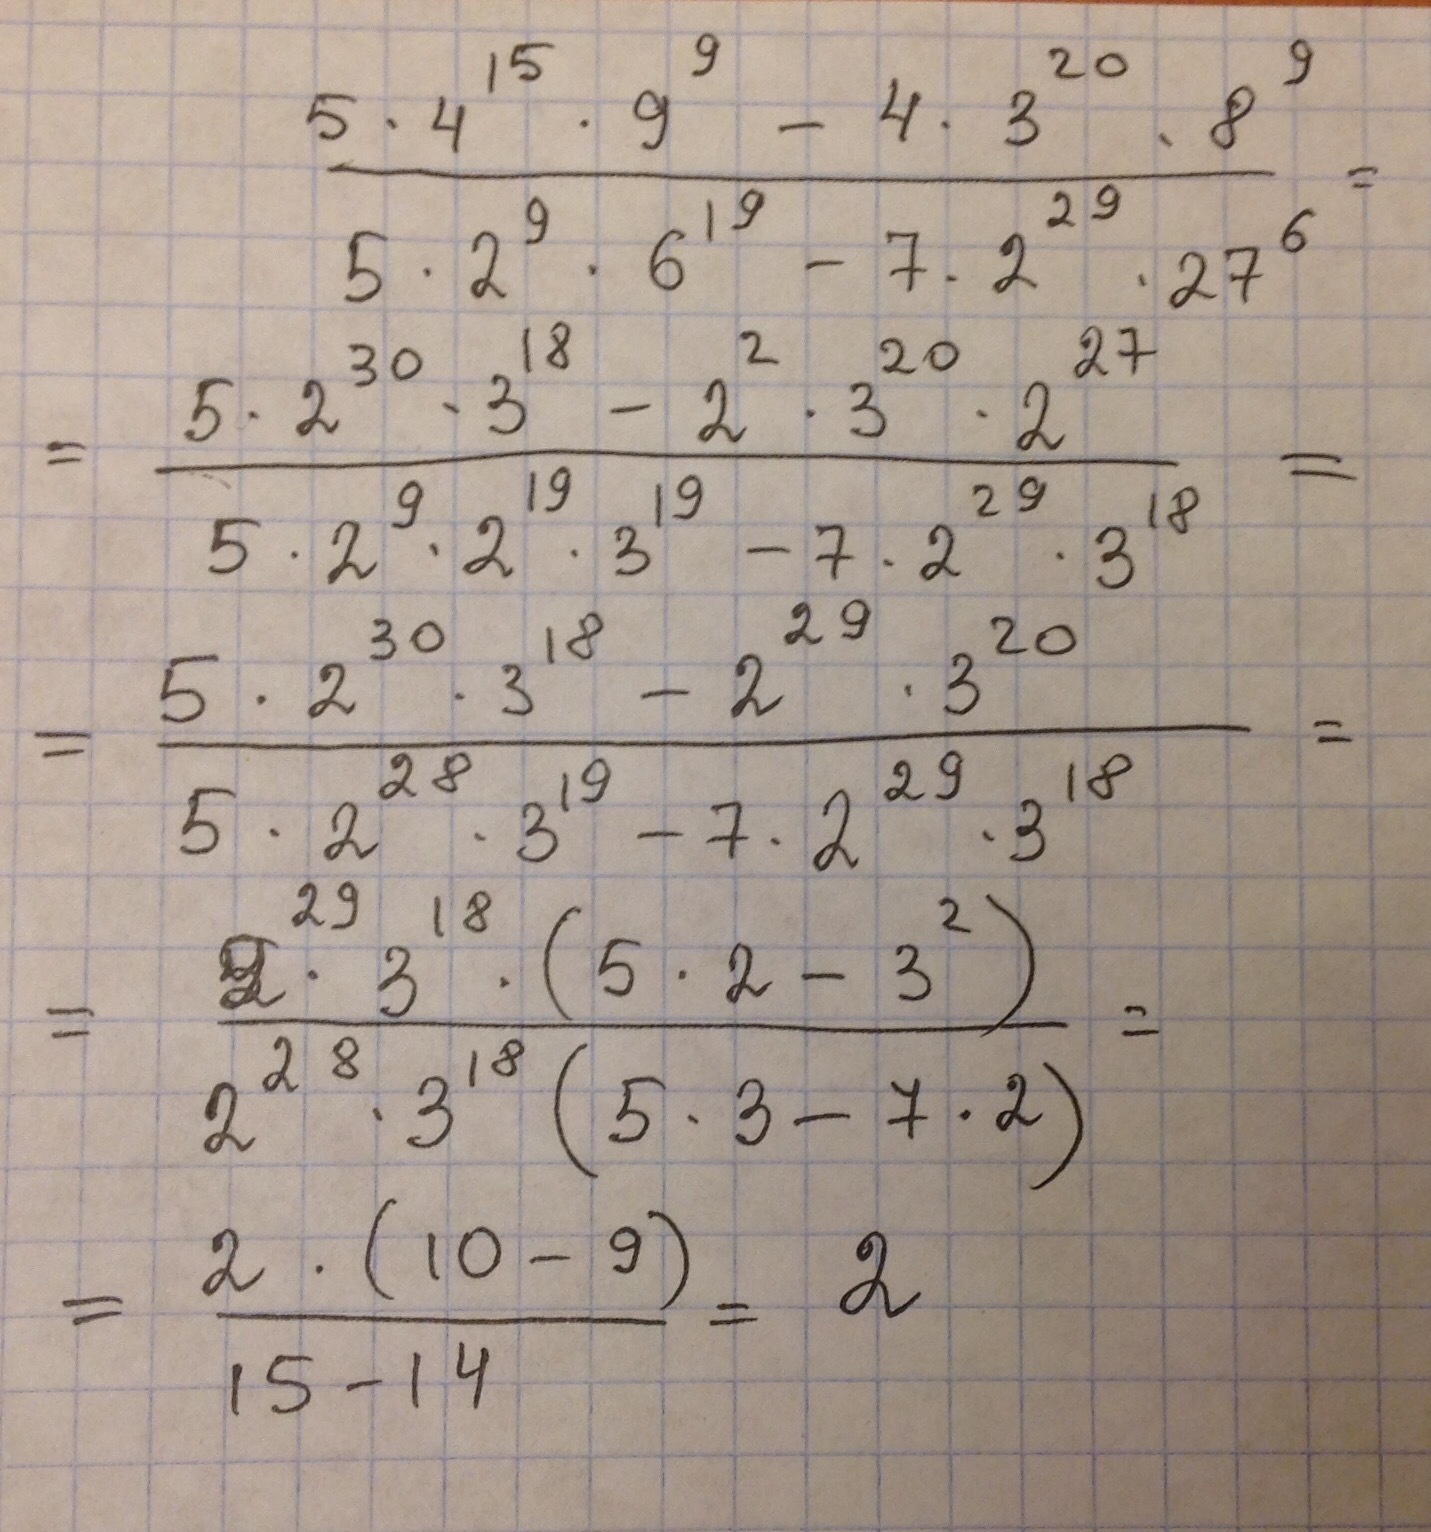 5 · 4^15 · 9^9 − 4 · 3^20 · 8^9
5 · 2^9 · 6^19 − 7 · 2^29 · 27^6 =
= 5 · 2^30 · 3^18 − 2^2 · 3^20 · 2^27
5 · 2^9 · 2^19 · 3^19 − 7 · 2^29 · 3^18 =
= 5 · 2^30 · 3^18 − 2^29 · 3^20
5 · 2^28 · 3^19 − 7 · 2^29 · 3^18 =
= 2^29 · 3^18 · (5 · 2 − 3^2)
2^28 · 3^18 (5 · 3 − 7 · 2) =
= 2 · (10 − 9)
15 − 14 = 2